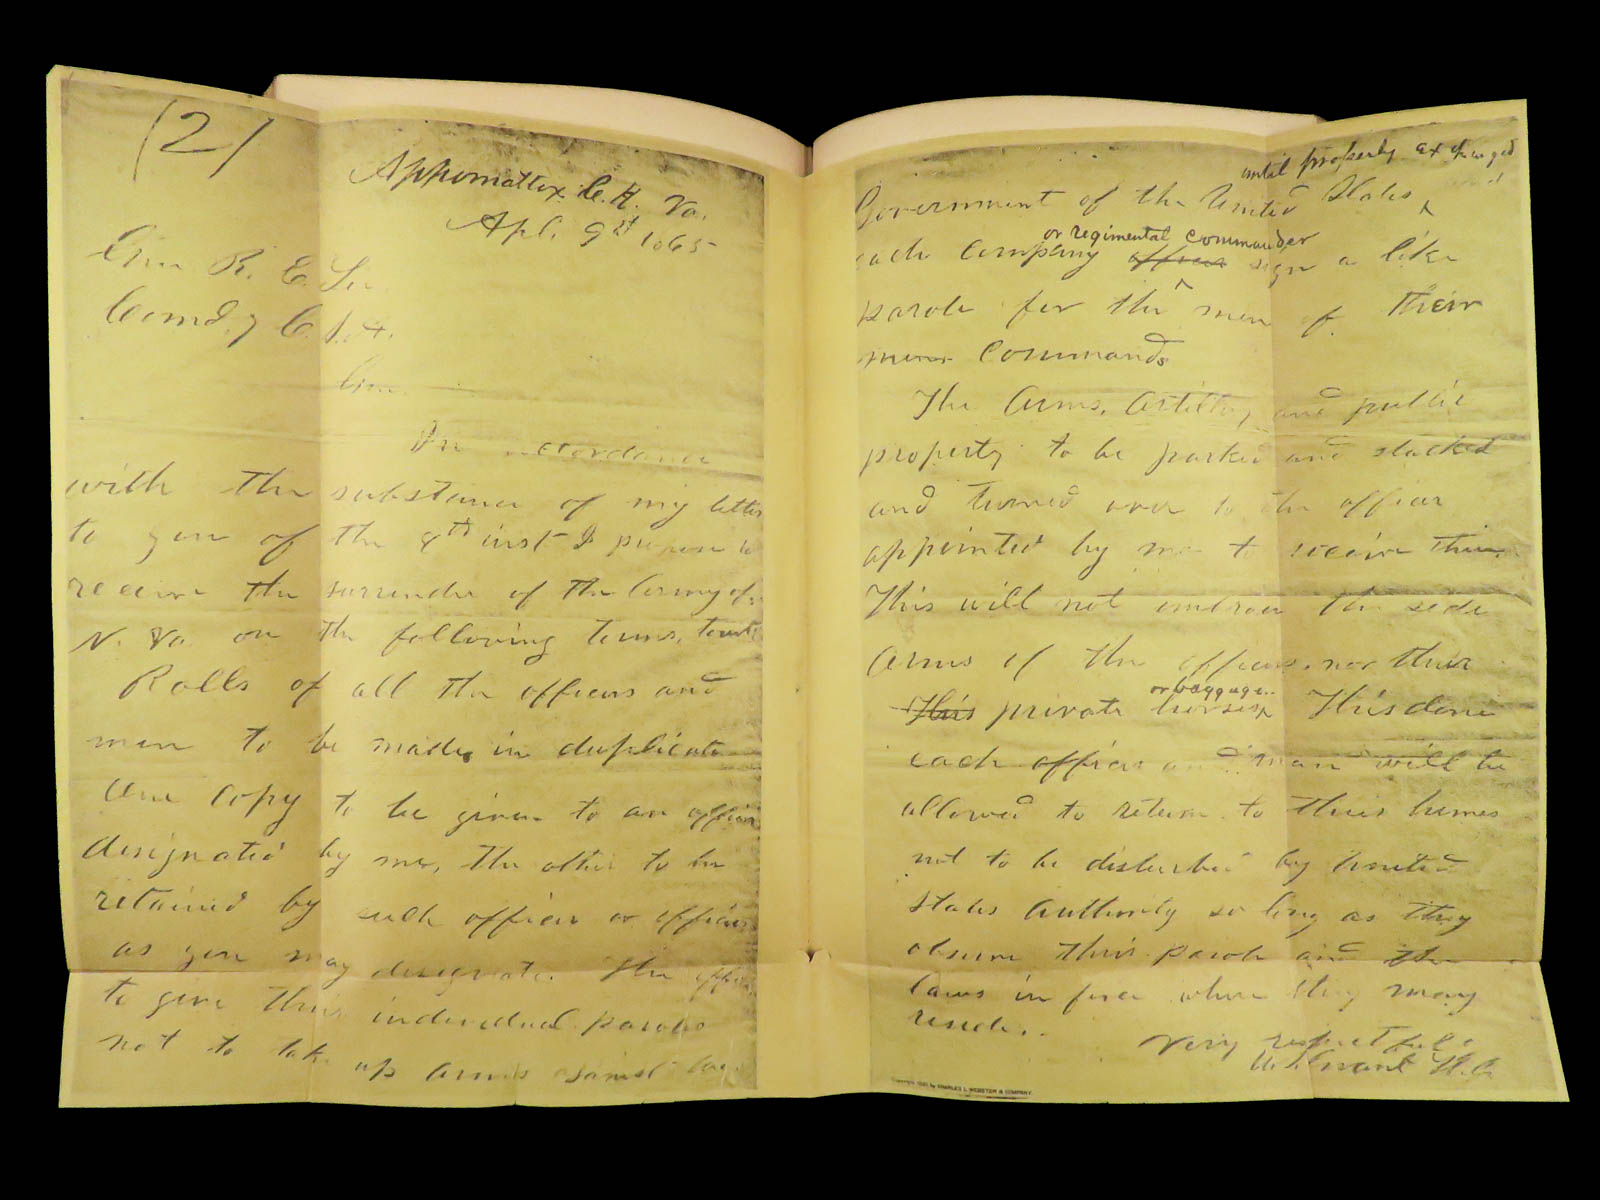 (2)
Appomattox C. H. Va.
Apl. 9th 1865
Gen R. E. Lee
Comd.g C. S. A.
Gen.
In accordance
with the substance of my letter
to you of the 8th inst I propose to
receive the surrender of the Army of
N. Va on the following terms, towit:
Rolls of all the officers and
men to be made in duplicate
One copy to be given to an officer
designated by me, the other to be
retained by such officer or officers
as you may designate. The officers
to give their individual paroles
not to take up arms against the
until properly exchanged
Government of the United States
or regimental commander
each company officer sign a like
parole for the men of their
commands
The Arms, Artillery and public
property to be parked and stacked
and turned over to the officer
appointed by me to receive them.
This will not embrace the side
Arms of the officers, nor their
or baggage.
This private horses This done
each officer and man will be
allowed to return to their homes
not to be disturbed by United
States Authority so long as they
observe their parole and the
laws in force where they may
reside.
Very respectfully
U. S. Grant Lt. Gn
Copyright by CHARLES L. WEBSTER & COMPANY